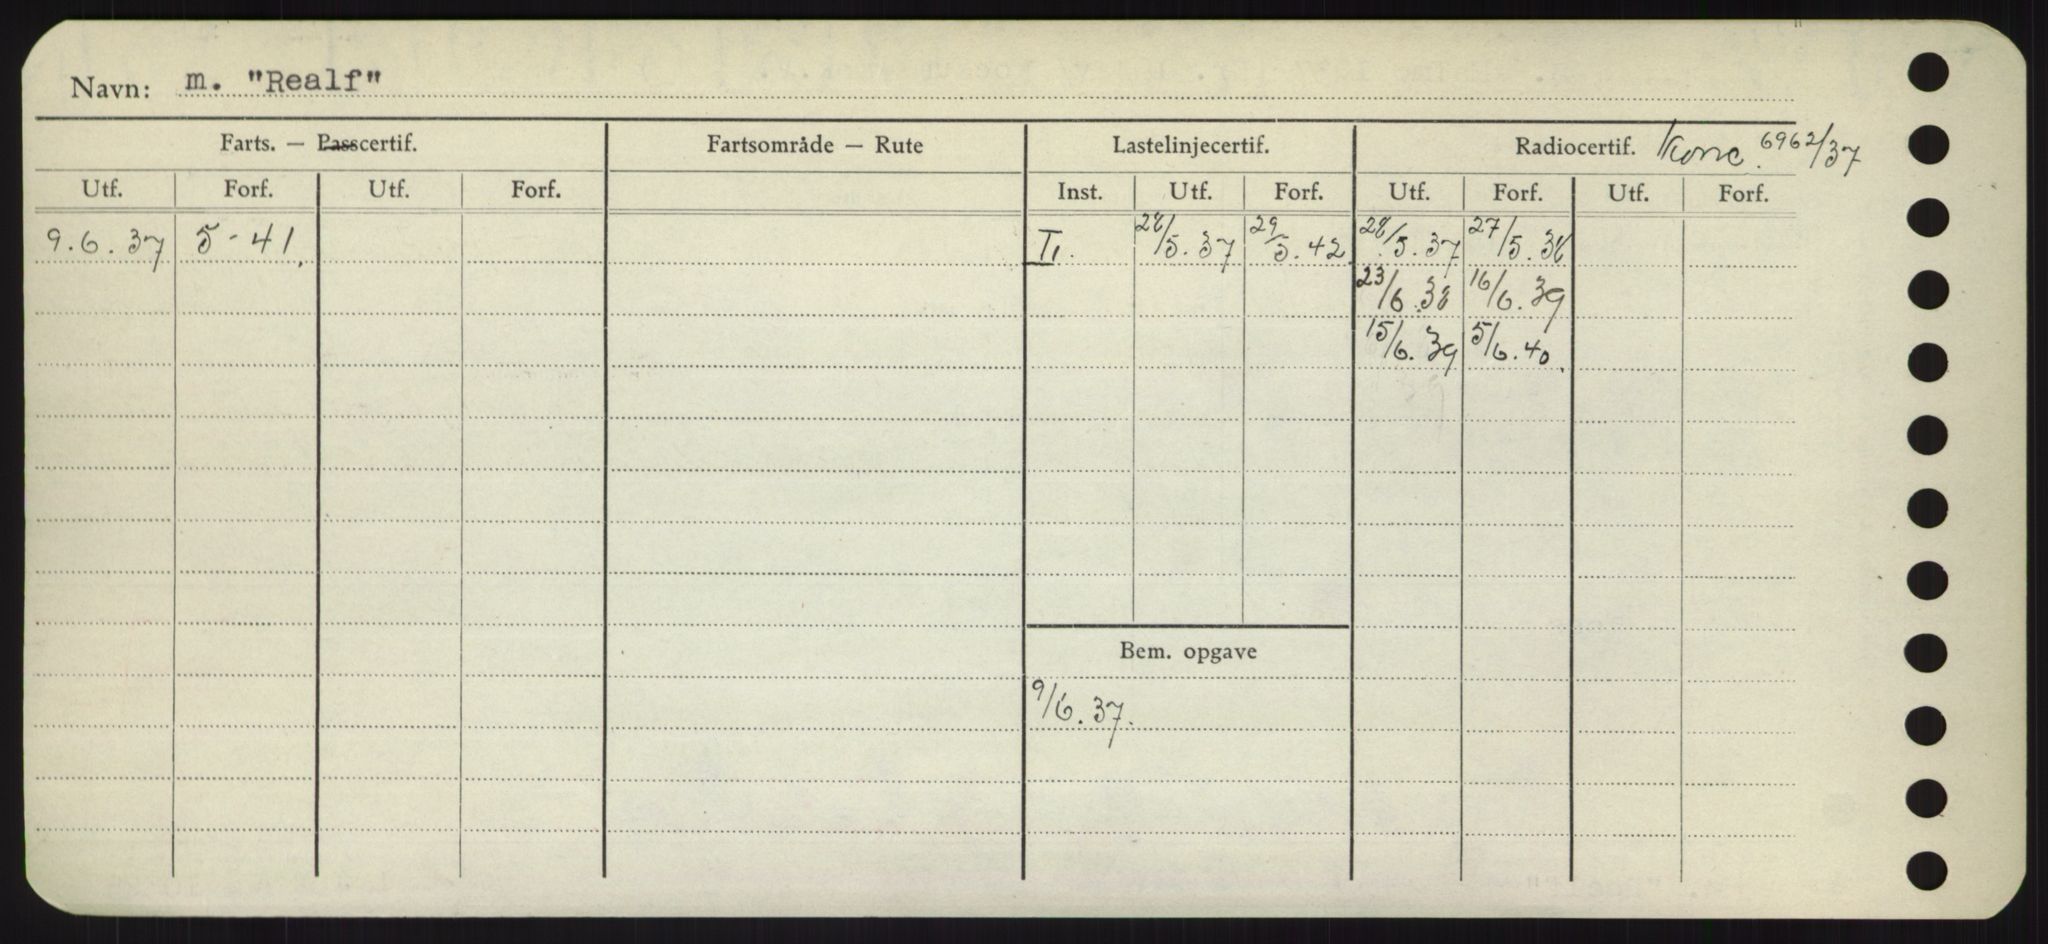 Navn: m. "Realf"
Farts. — Passcertif. Fartsområde — Rute Lastelinjecertif. Radiocertif. Konc. 6962/37
Utf. Forf. Utf. Forf. Inst. Utf. Forf. Utf. Forf. Utf. Forf.
9.6.37 5-41. 28/5.37 29/5.42 28/5.37 27/5.38
23/6.38 16/6.39
15/6.39 5/6.40.
Bem. opgave
9/6.37.